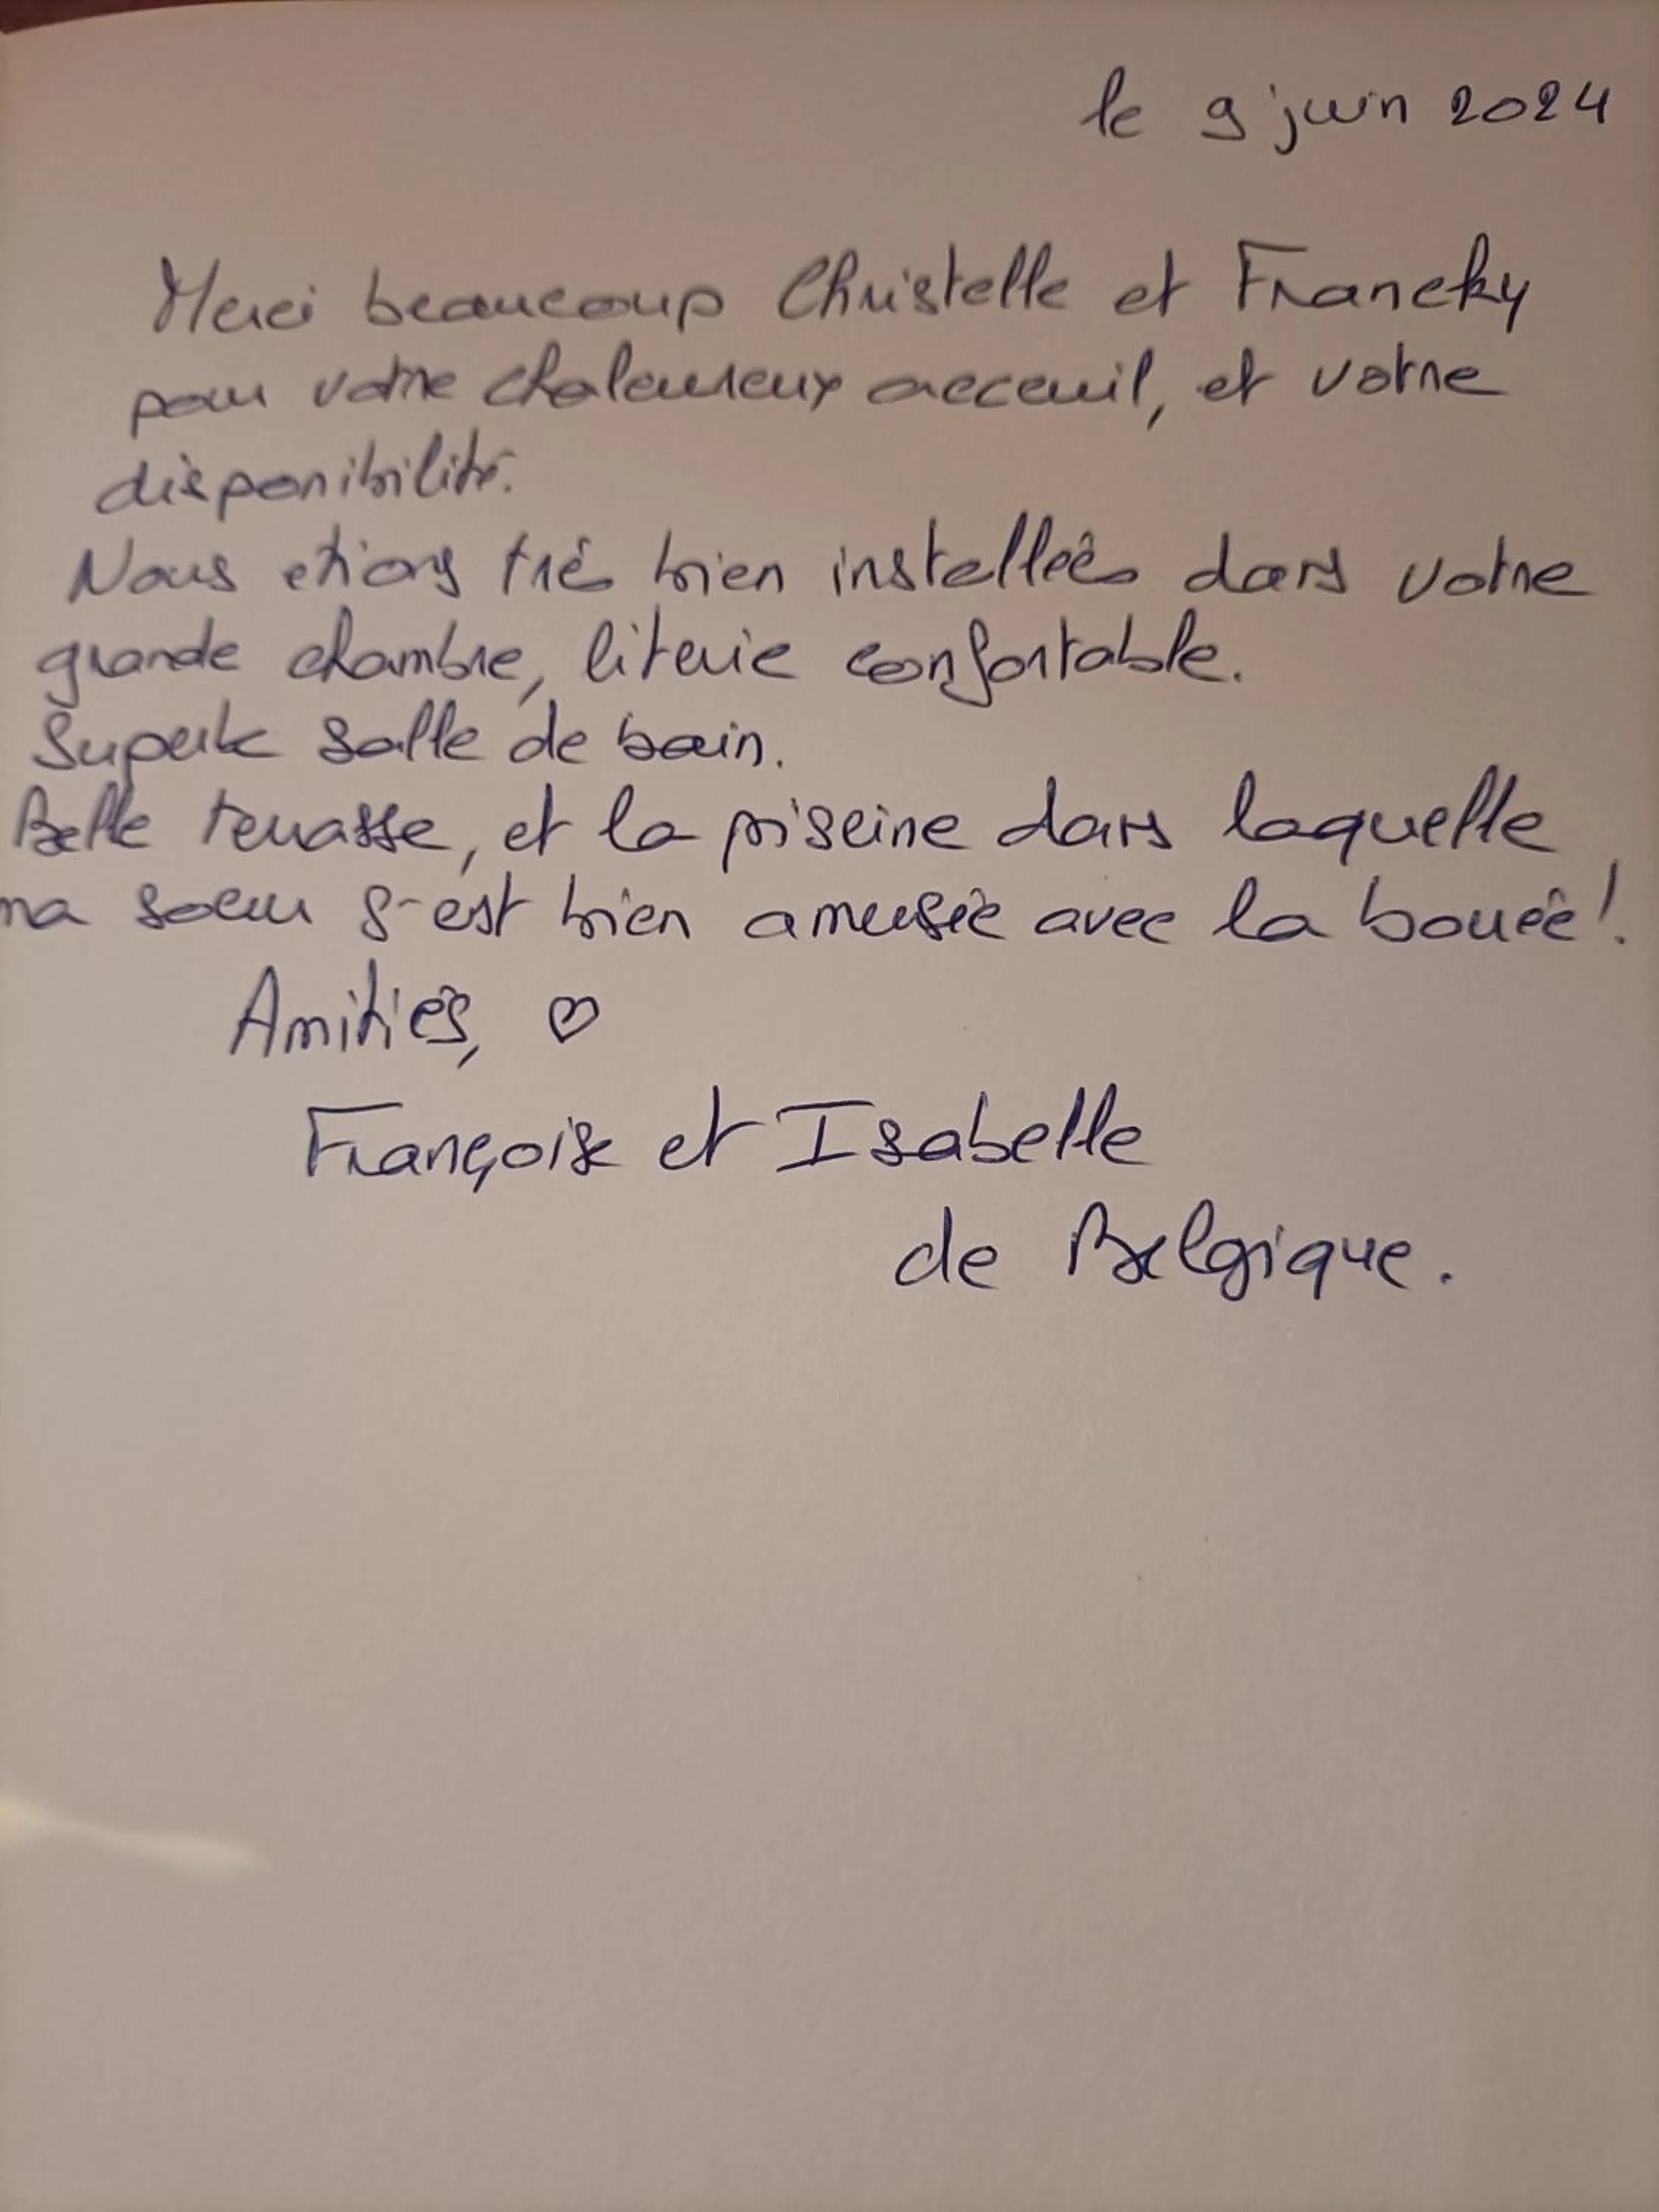 le 9 juin 2024
Merci beaucoup Christelle et Francky
pour votre chaleureux acceuil, et votre
disponibilité.
Nous etions trés bien installées dans votre
grande chambre, literie confortable.
Superbe salle de bain.
Belle terrasse, et la pisceine dans laquelle
ma soeur s'est bien ameusée avec la bouée!
Amitiés, ♡
Françoise et Isabelle
de Belgique.